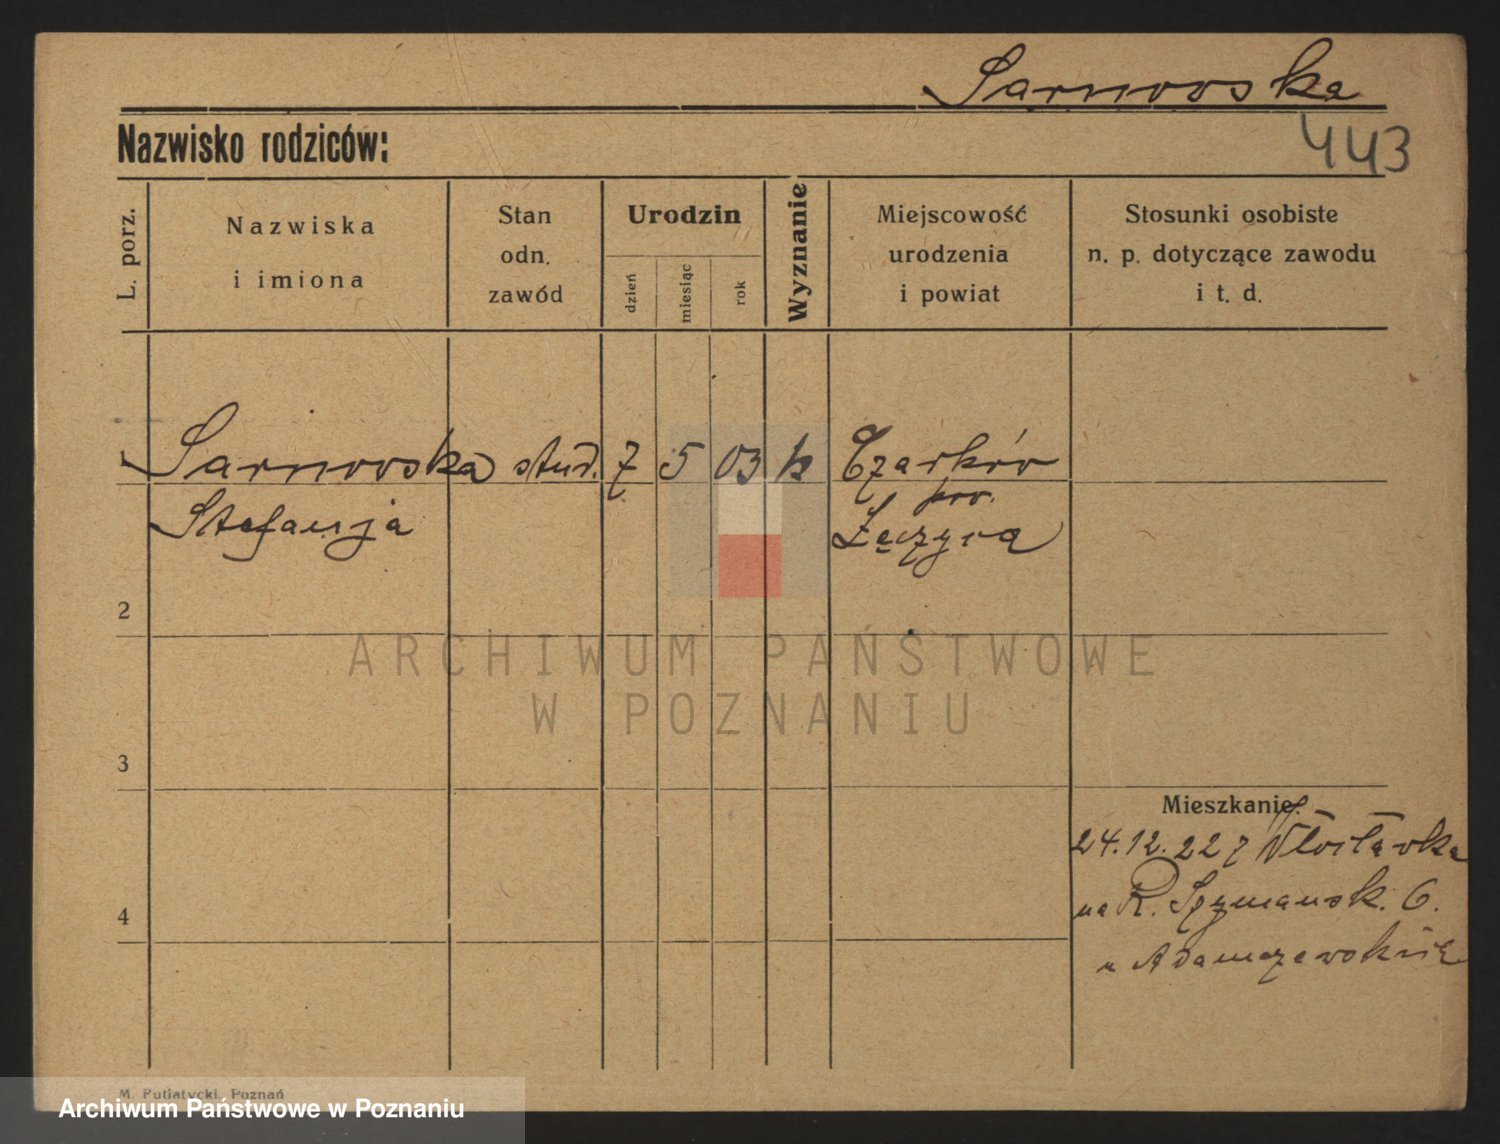 Sarnowska
Nazwisko rodziców:
443
L. porz.
Nazwiska
i imiona
Stan
odn.
zawód
Urodzin
dzień
miesiąc
rok
Wyznanie
Miejscowość
urodzenia
i powiat
Stosunki osobiste
n. p. dotyczące zawodu
i t. d.
1 Sarnowska stud. 7 5 03 k Czarków
pow.
Stefanja Łęczyca
2
ARCHIWUM PAŃSTWOWE
W POZNANIU
3
Mieszkanie:
24.12.22 z Włocławka
na R. Szymańsk. 6.
4
u Adamczewskiej
M. Putiatycki, Poznań
Archiwum Państwowe w Poznaniu